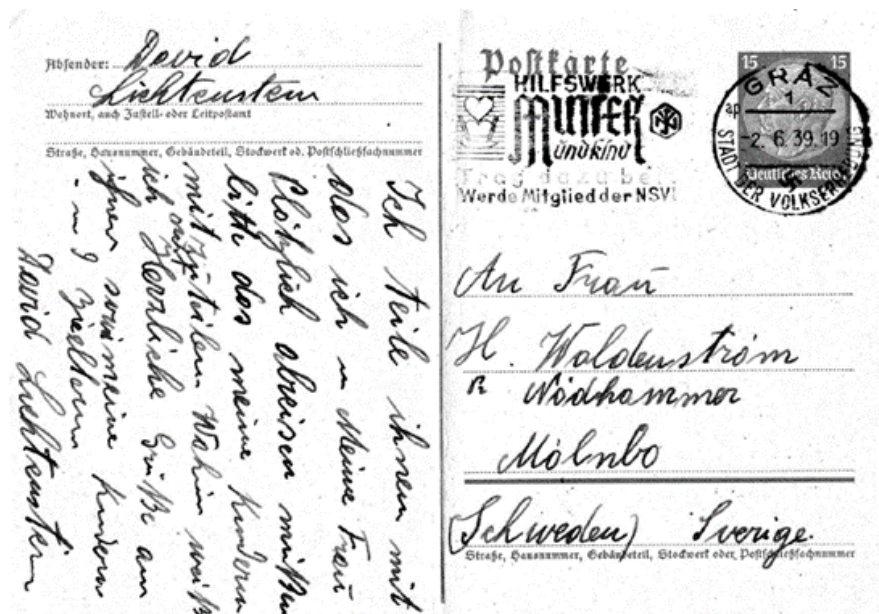 Absender: David
Lichtenstein
Wohnort, auch Zustell- oder Leitpostamt
Straße, Hausnummer, Gebäudeteil, Stockwerk od. Postschließfachnummer
Ich teile ihnen mit
das ich u Meine Frau
Plötzlich abreisen müßen
bitte das meine Kindern
mitzuteilen Wohin weiß
ich nicht Herzliche Grüße an
ihnen sowi meine Kindern
David Lichtenstern
Postkarte
HILFSWERK
MUTTER
und Kind
Trag dazu bei
Werde Mitglied der NSV!
15 15
GRAZ
1
-2. 6. 39. 19
STADT DER VOLKSERHEBUNG
Deutsches Reich
An Frau
H. Waldenström
Nödhammer
Mölnbo
(Schweden) Sverige.
Straße, Hausnummer, Gebäudeteil, Stockwerk oder Postschließfachnummer